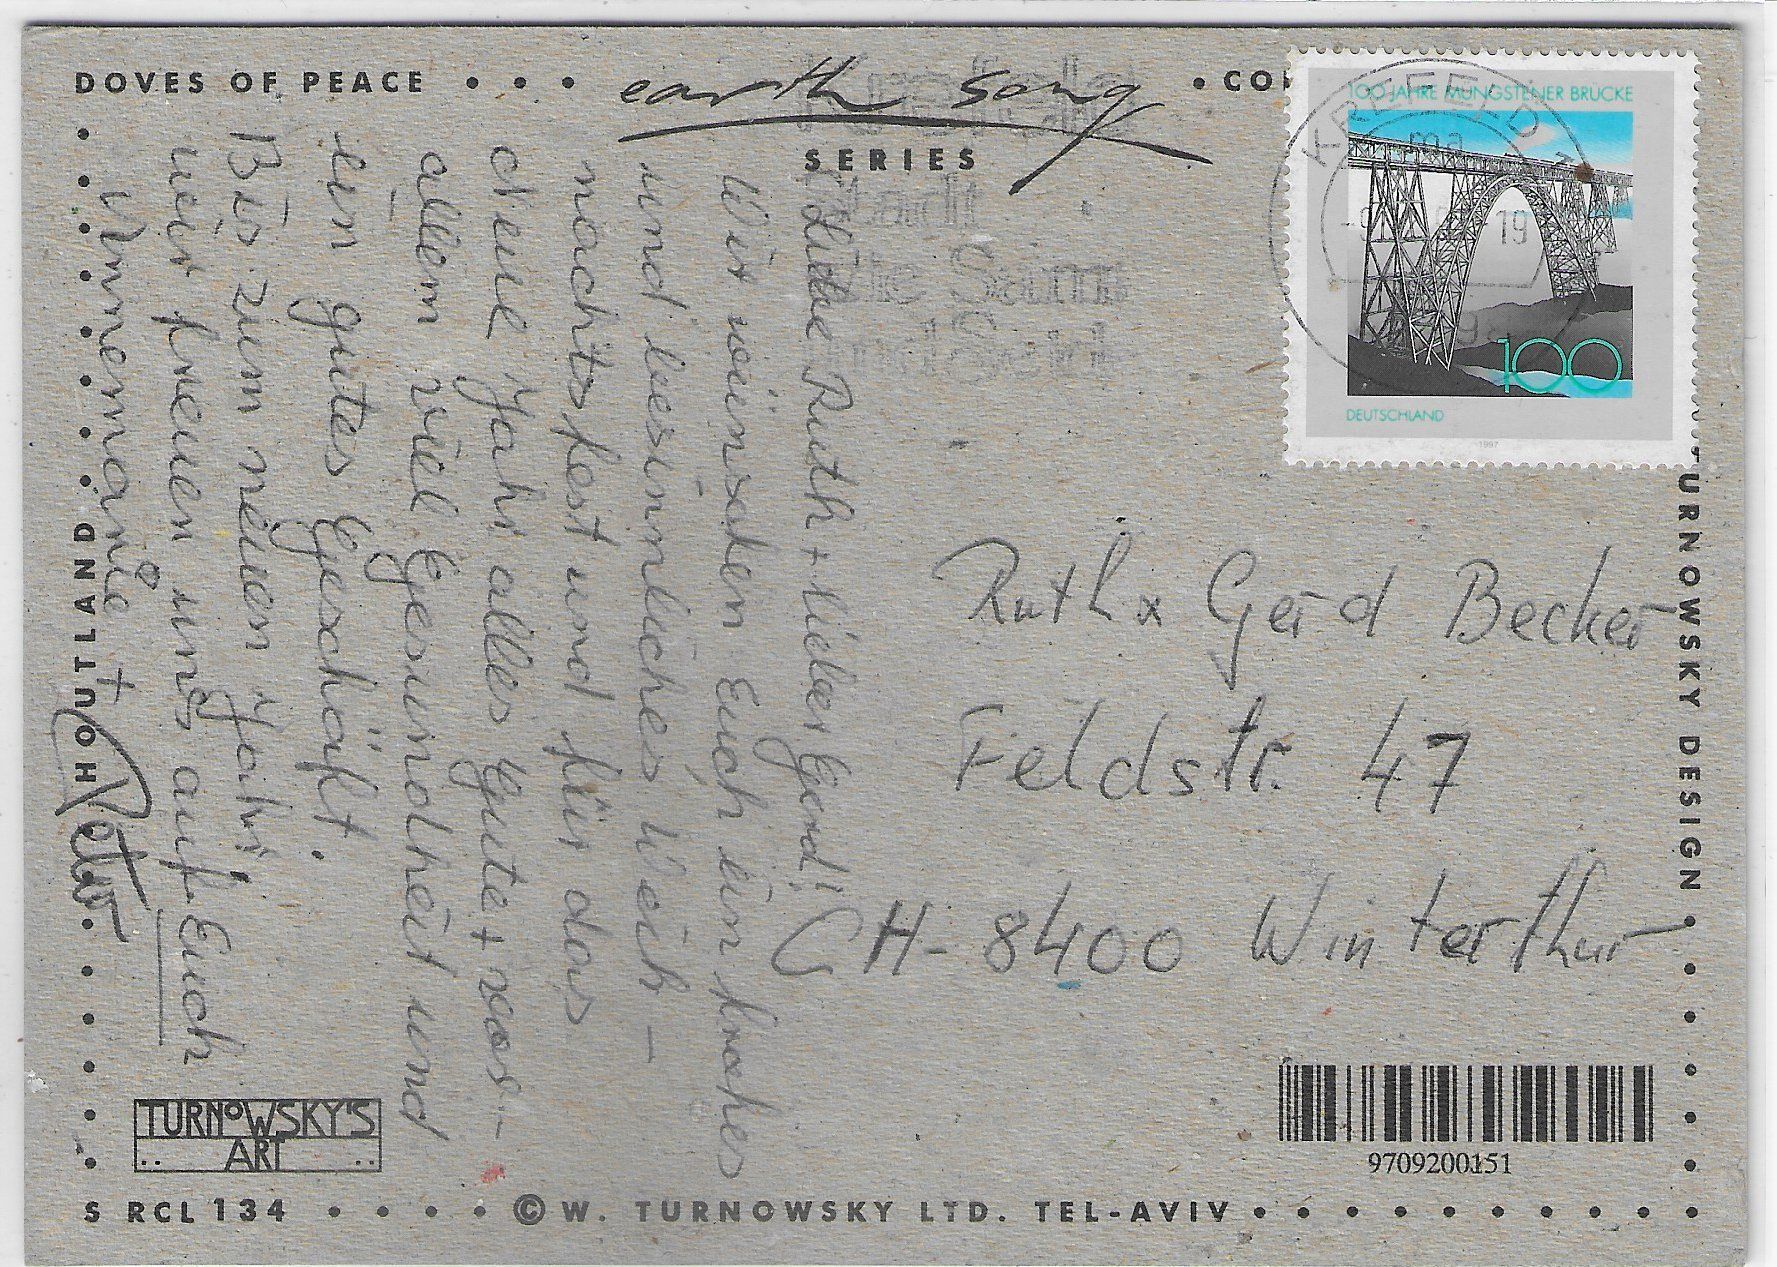 DOVES OF PEACE
earth song
SERIES
100 JAHRE MÜNGSTENER BRÜCKE
KREFELD 1
ma
19
100
DEUTSCHLAND
1997
Liebe Ruth + lieber Gerd!
Wir wünschen Euch ein frohes
und besinnliches Weih-
nachtsfest und für das
Neue Jahr alles Gute + vor-
allem viel Gesundheit und
ein gutes Geschäft.
Bis zum neuen Jahr
wir freuen uns auf Euch
Annemarie + Peter
Ruth + Gerd Becker
Feldstr. 47
CH-8400 Winterthur
HOUTLAND
TURNOWSKY DESIGN
TURNOWSKY'S
ART
9709200151
S RCL 134
© W. TURNOWSKY LTD. TEL-AVIV